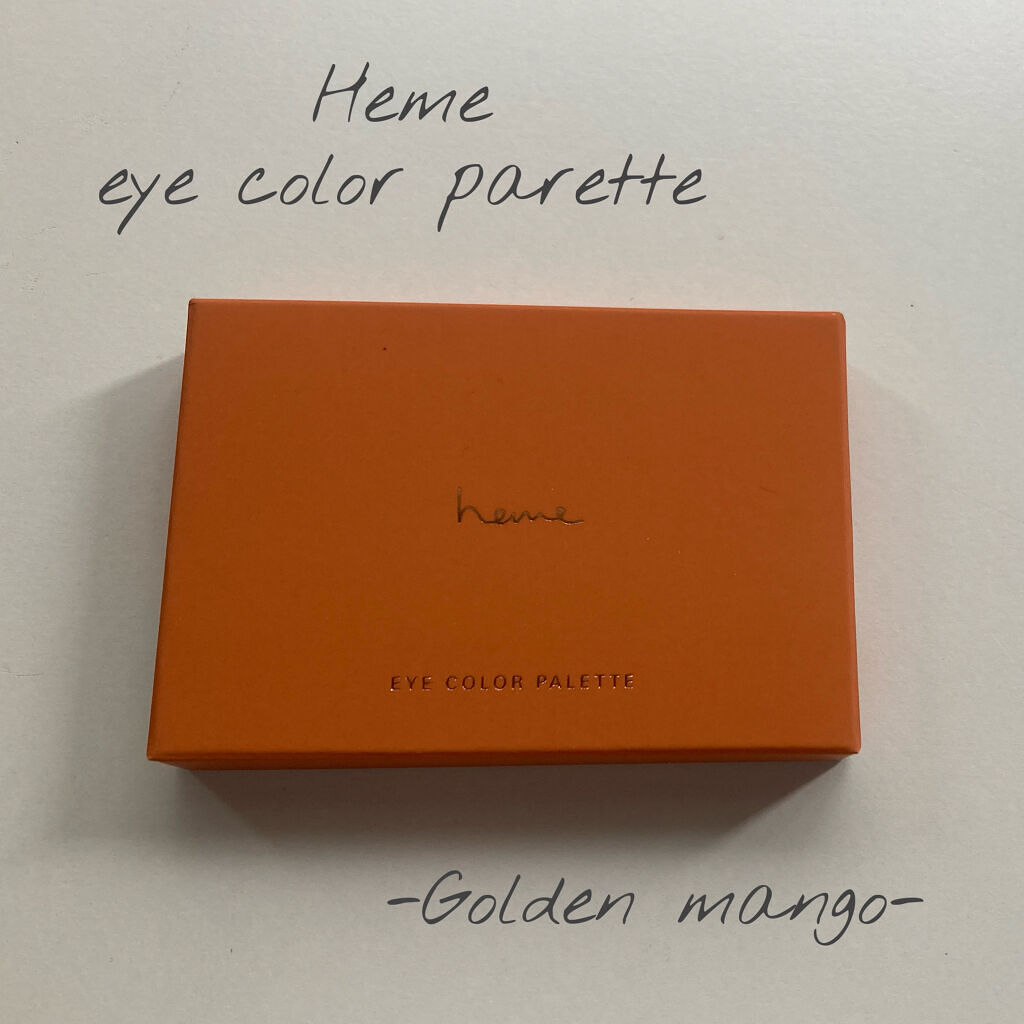 Heme
eye color parette
heme
EYE COLOR PALETTE
-Golden mango-